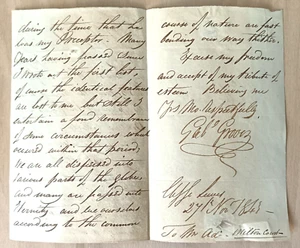 during the time that he
was my Preceptor. Many
years having passed since
I wrote out the first list,
of course the identical features
are lost to me but still I
entertain a fond remembrance
of some circumstances which
occured within that period.
We are all dispersed into
various parts of the globe,
and many are passed into
Eternity, and we ourselves
according to the common
course of nature are fast
bending our way thither.
Excuse my freedom
and accept of my tribute of
esteem Believing me
Yrs Mo. Respectfully,
Geo Groves
Cliffe Lewes
27th Nov 1863
To Mr Ad.